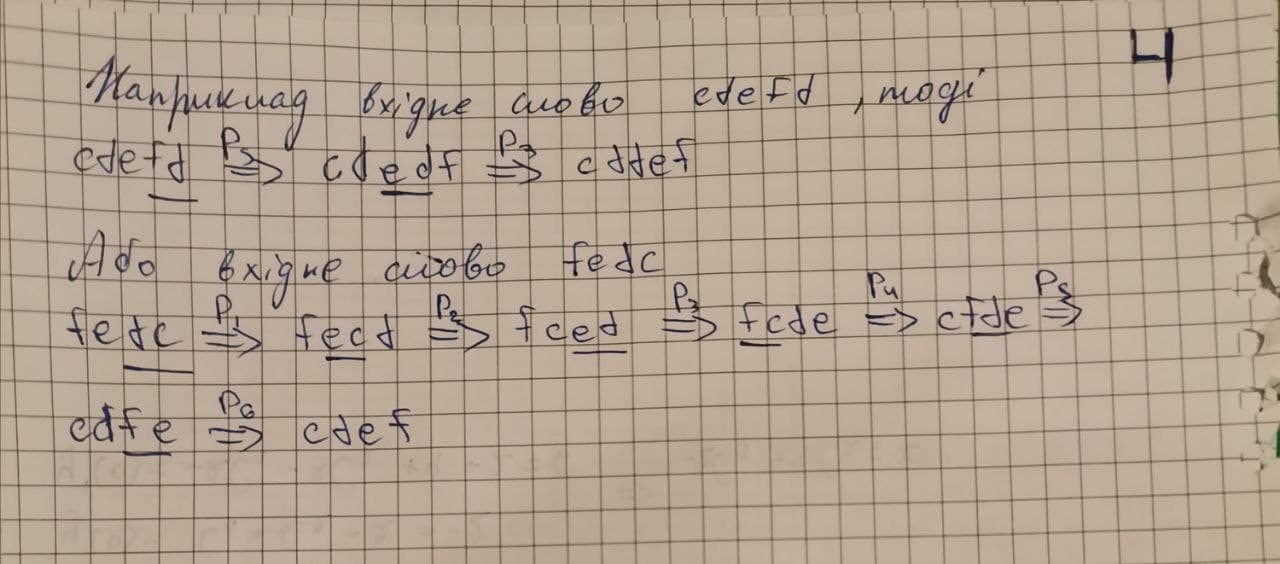 4
Наприклад вхідне слово cdefd, тоді
cdefd P5⇒ cdedf P3⇒ cddef
Або вхідне слово fedc
fedc P1⇒ fecd P2⇒ fced P3⇒ fcde P4⇒ cfde P5⇒
cdfe P6⇒ cdef